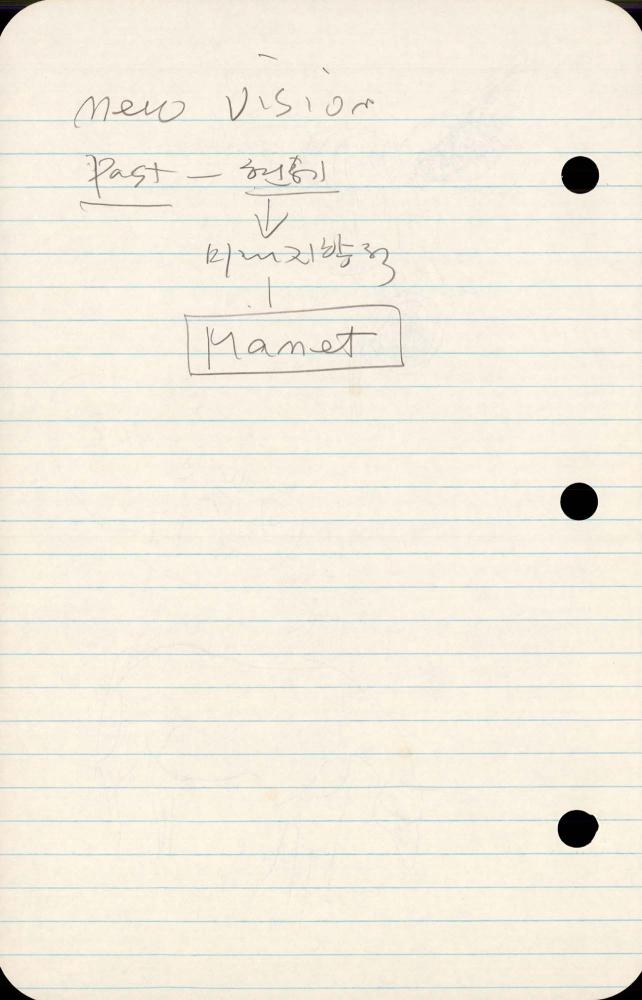 new vision
Past —
↓
미래지향적
Manet